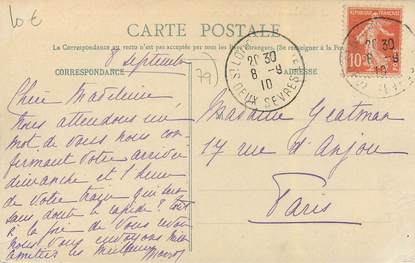 10 €
CARTE POSTALE
La Correspondance au recto n'est pas acceptée par tous les pays étrangers. (Se renseigner à la Poste)
CORRESPONDANCE
ADRESSE
79
8 septembre
Chère Madeleine
Nous attendons un
mot de vous nous con-
firmant votre arrivée
dimanche et l'heure
de votre train qui sera
sans doute le rapide? tout
à la joie de vous revoir
nous vous envoyons mille
amitiés les meilleures
Madame Yeatman
17 rue d'Anjou
Paris
20 30
8 - 9
10
DEUX SEVRES
REPUBLIQUE FRANÇAISE
10
POSTES
20 30
8 - 9
10